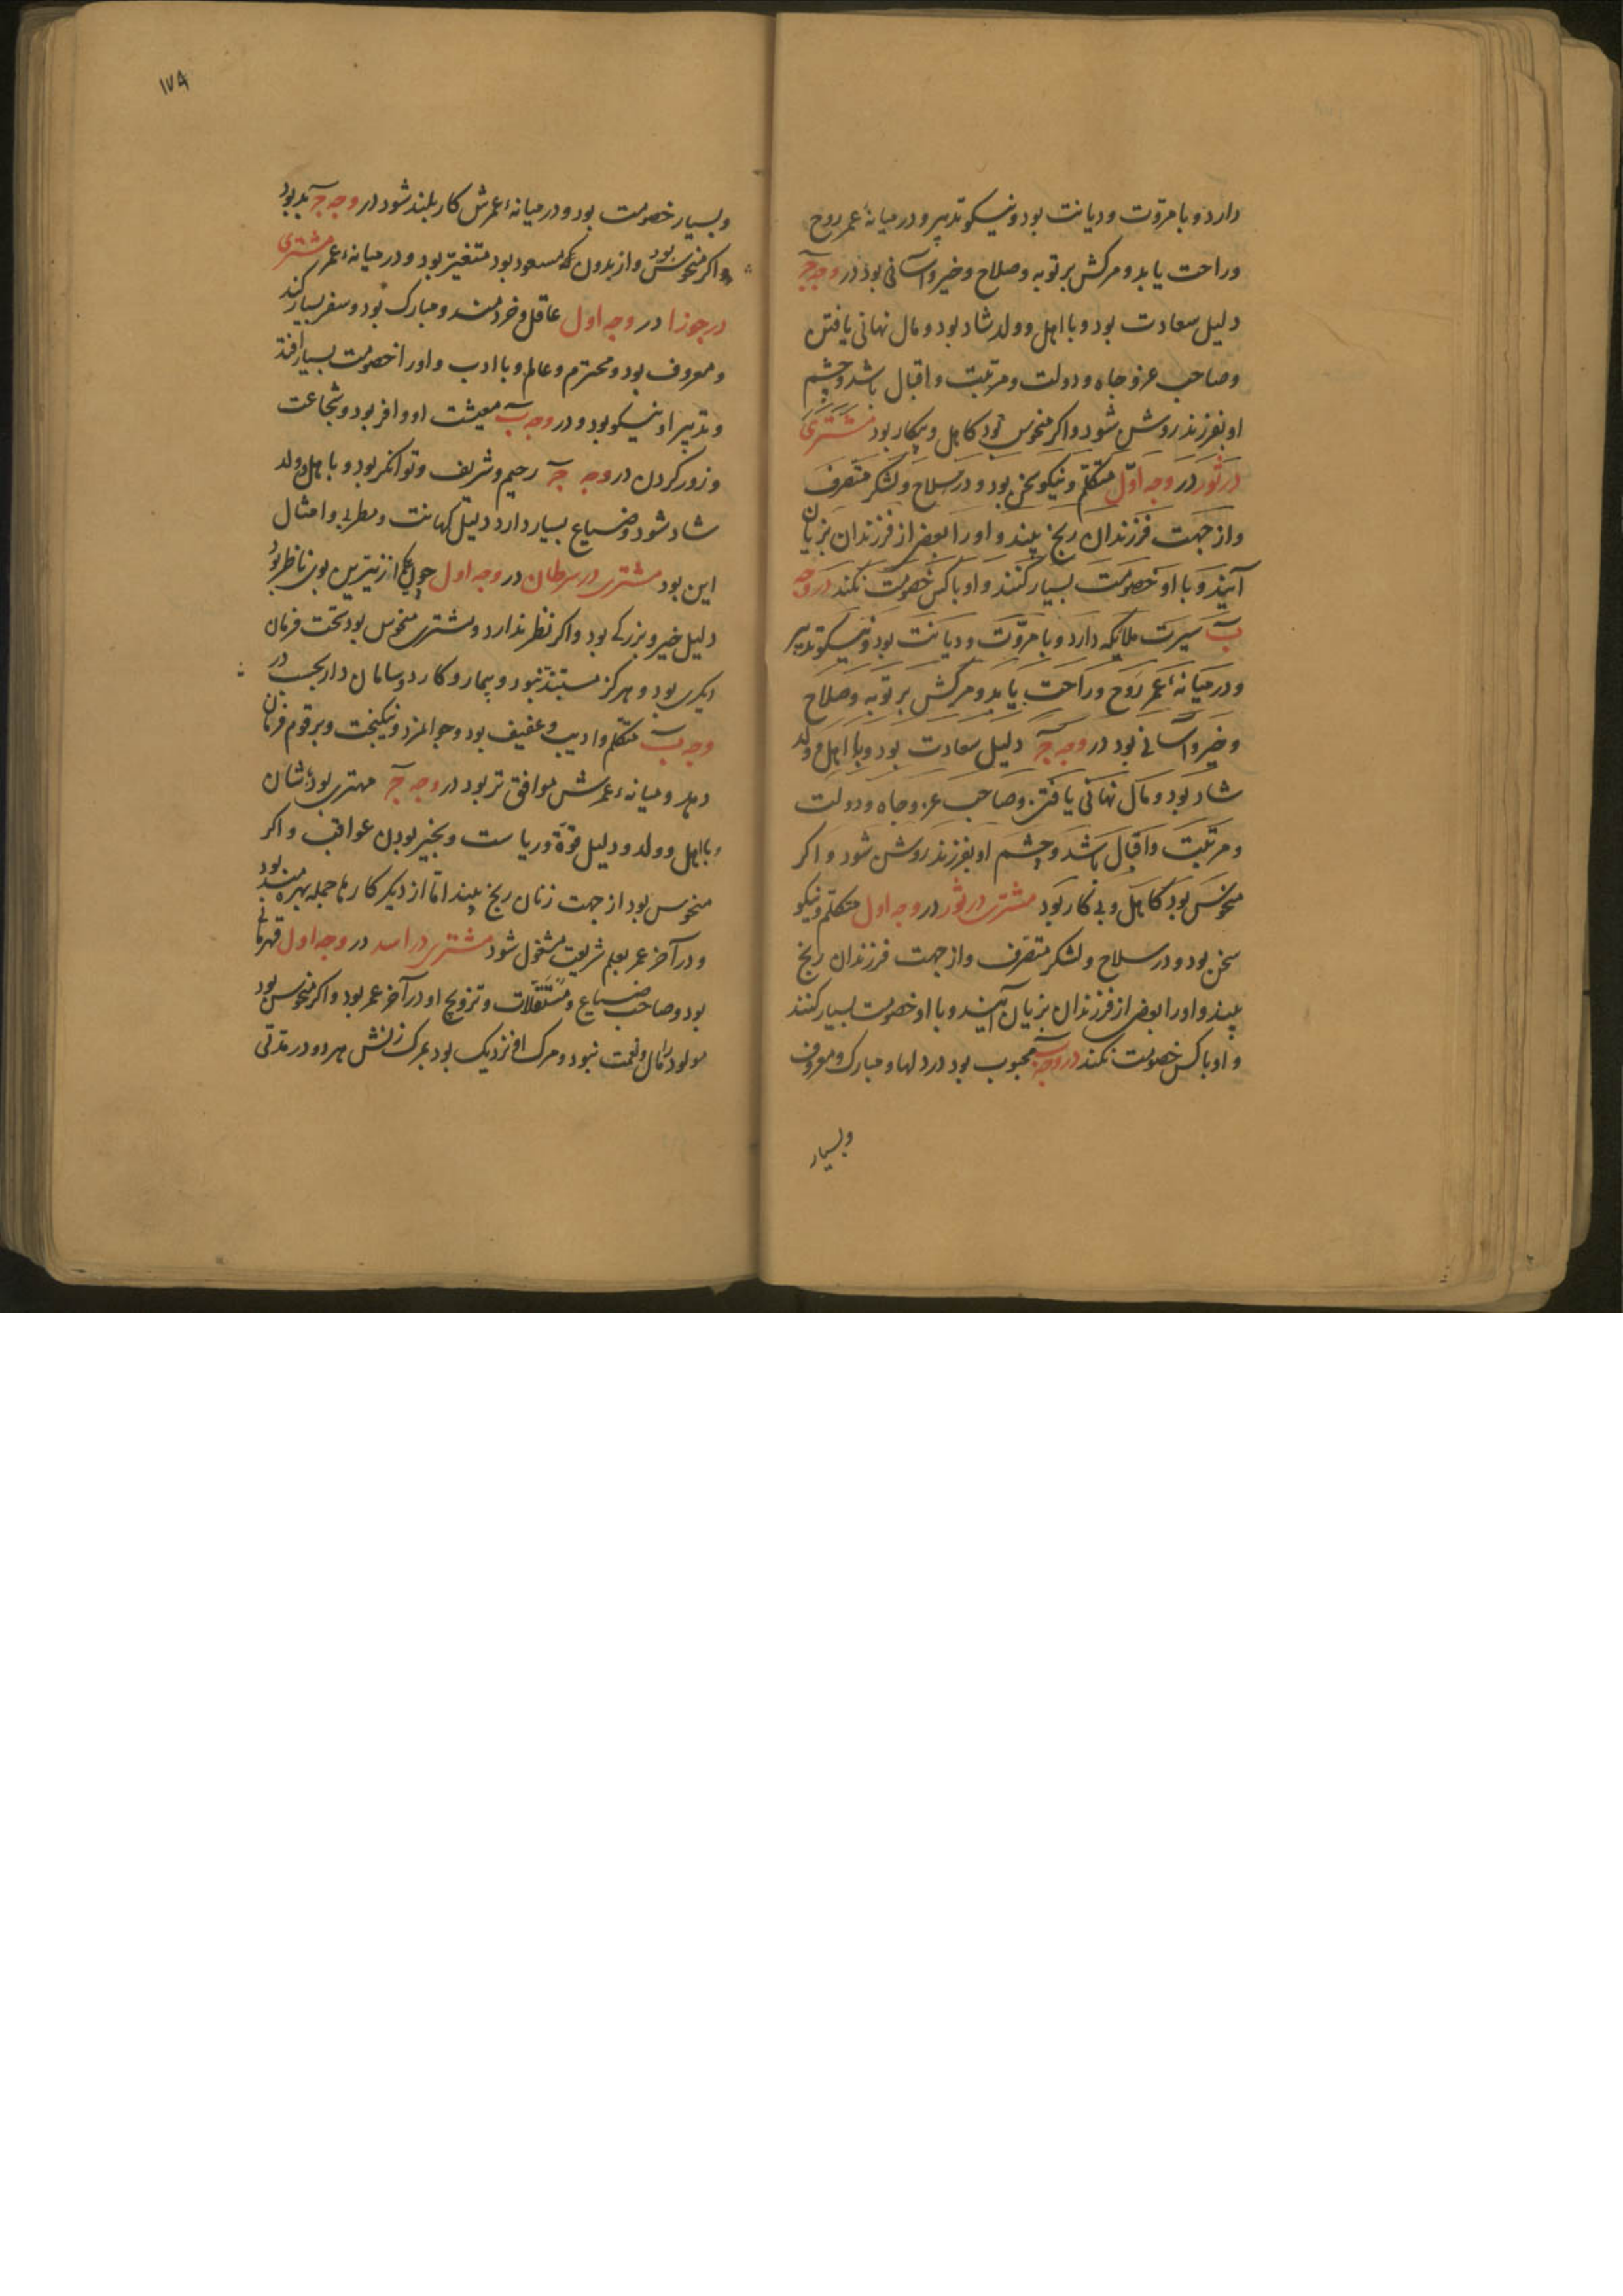 دارد و با مروّت و دیانت بود و نیکو تدبیر و در میانهٔ عمر روح
و راحت یابد و مرکش بر توبه و صلاح و خیر و آسانی بود در وجه جـ
دلیل سعادت بود و با اهل و ولد شاد بود و مال نهانی یافتن
و صاحب عز و جاه و دولت و مرتبت و اقبال باشد و چشم
او بفرزند روشن شود و اکر منحوس بود کاهل و بیکار بود مشتری
در ثور در وجه اوّل متکلّم و نیکو سخن بود و در سلاح و لشکر متصرف
و از جهت فرزندان رنج بیند و او را بعضی از فرزندان بزیان
آیند و با او خصومت بسیار کنند و او با کس خصومت نکند در وجه
بـ سیرت ملایکه دارد و با مروّت و دیانت بود و نیکو تدبیر
و در میانهٔ عمر روح و راحت یابد و مرکش بر توبه و صلاح
و خیر و آسانی بود در وجه جـ دلیل سعادت بود و با اهل و ولد
شاد بود و مال نهانی یافتن و صاحب عز و جاه و دولت
و مرتبت و اقبال باشد و چشم او بفرزند روشن شود و اکر
منحوس بود کاهل و بی کار بود مشتری در ثور در وجه اول متکلّم و نیکو
سخن بود و در سلاح و لشکر متصرف و از جهت فرزندان رنج
بیند و او را بعضی از فرزندان بزیان آیند و با او خصومت بسیار کنند
و او با کس خصومت نکند در وجه بـ محبوب بود در دلها و مبارک و معروف
و بسیار
۱۷۹
و بسیار خصومت بود و در میانهٔ عمرش کار بلند شود در وجه جـ بد بود
و اکر منحوس بود و از بدون که مسعود بود متغیّر بود و در میانهٔ عمر مشتری
در جوزا در وجه اول عاقل و خردمند و مبارک بود و سفر بسیار کند
و معروف بود و محترم و عالم و با ادب و او را خصومت بسیار افتد
و تدبیر او نیکو بود و در وجه بـ معیشت او وافر بود و شجاعت
و زور کردن در وجه جـ رحیم و شریف و توانکر بود و با اهل و ولد
شاد شود و ضیاع بسیار دارد دلیل کهانت و مطربی و امثال
این بود مشتری در سرطان در وجه اول چون یکی از نیّرین بوی ناظر بود
دلیل خیر و بزرکی بود و اکر نظر ندارد و مشتری منحوس بود تحت فرمان
دیکری بود و هرکز مستبد نبود و بیمار و کارد و سامان دار بحسب در
وجه بـ متکلم و ادیب و عفیف بود و جوانمرد و نیکبخت و بر قوم فرمان
دهد و میانهٔ عمرش موافق تر بود در وجه جـ مهتری بود شان
با اهل و ولد و دلیل قوّة و ریاست و بخیر بودن عواقب و اکر
منحوس بود از جهت زنان رنج بیند امّا از دیکر کارها جمله بهره‌مند بود
و در آخر عمر بعلم شریعت مشغول شود مشتری در اسد در وجه اول قهرمان
بود و صاحب ضیاع و مستغلات و تزویج او در آخر عمر بود و اکر منحوس بود
مولود را مال و نعمت نبود و مرک او نزدیک بود بمرک زنش هر دو در مدّتی